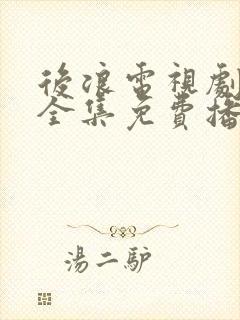 後浪電視劇
全集免費播
湯二驴